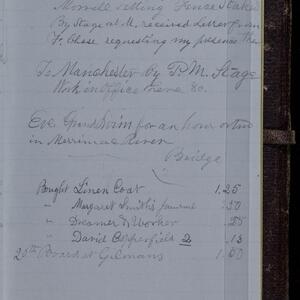 Morrell setting Fence Stakes
By Stage at M. received Letter from
F. Chase requesting my presence the
To Manchester by P.M. Stage
Work in Office here 80.
Eve. Good Swim for an hour or two
in Merrimac River
Bridge
Bought Linen Coat 1.25
" Margaret Smith's Journal .50
" Dreamer & Worker .25
" David Copperfield 2 .13
20th Board at Gilmans 1.00